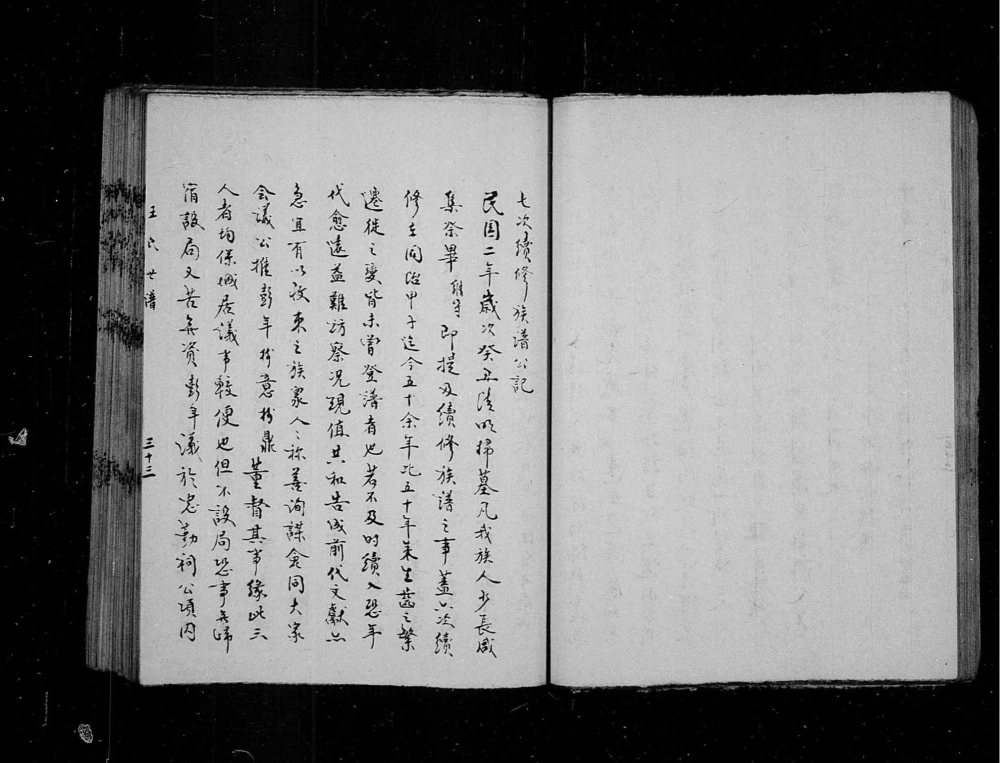 七次續修族譜公記
民国二年歲次癸丑清明掃墓凡我族人少長咸
集祭畢 即提及續修族譜之事蓋六次續
修在同治甲子迄今五十余年此五十年來生齒之繁
遷徙之變皆未曾登譜者也若不及时續入恐年
代愈遠益難訪察况現值共和告成前代文獻亦
急宜有以收束之族衆人々称善詢謀僉同大家
会議公推彭年 意 鼎董督其事緣此三
人者均係城居議事較便也但不設局恐事無归
宿設局又苦無資彭年議於忠勤祠公項内
王氏世譜
三十三